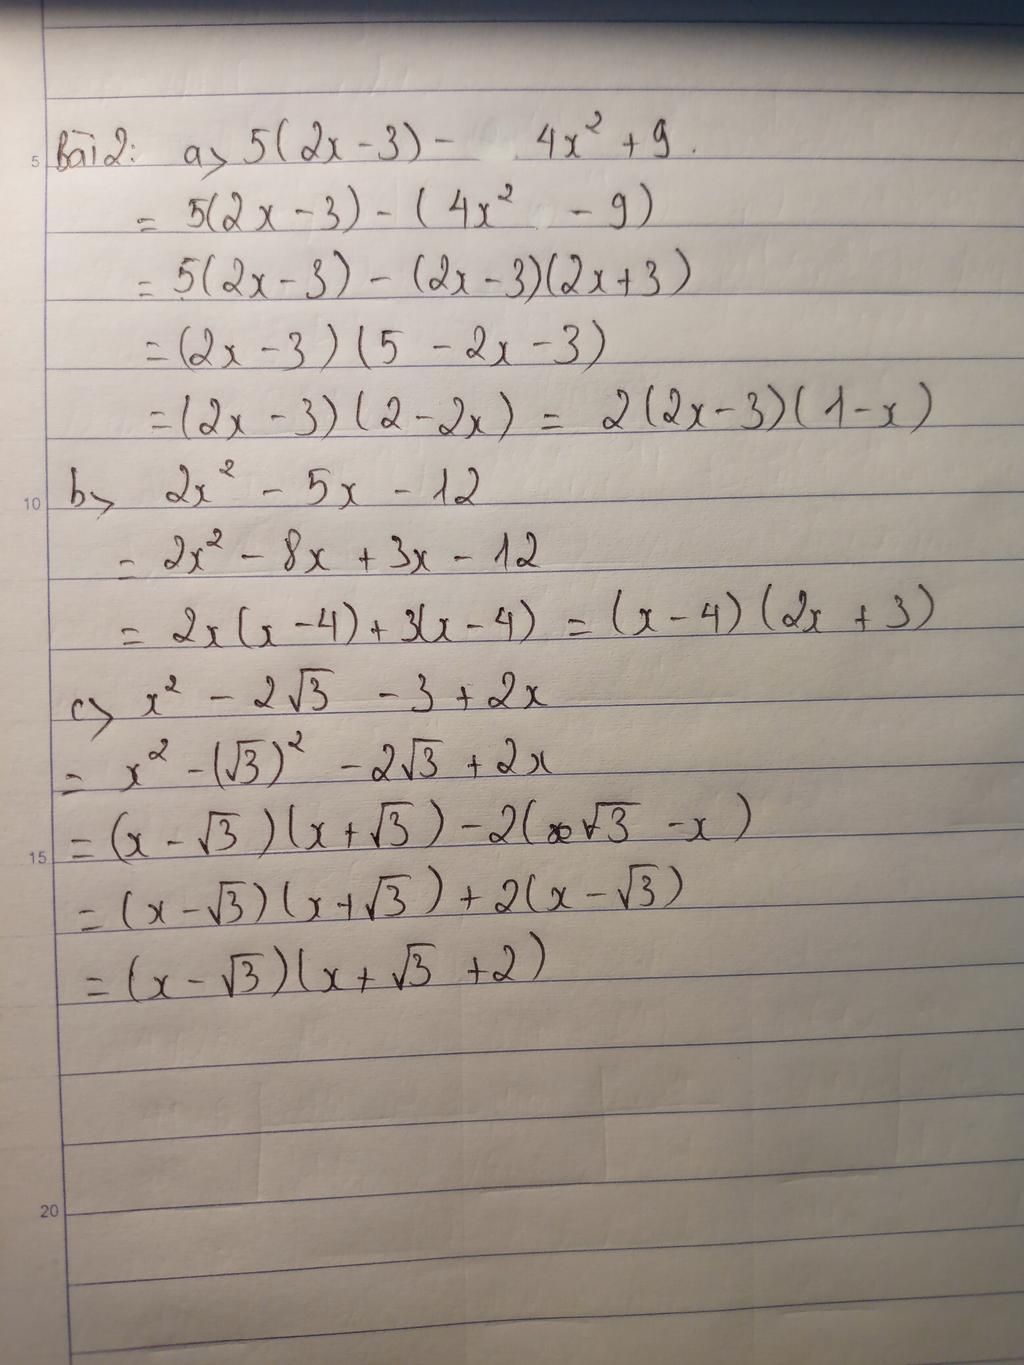 5
Bài 2: a> 5(2x - 3) - 4x² + 9.
= 5(2x - 3) - (4x² - 9)
= 5(2x - 3) - (2x - 3)(2x + 3)
= (2x - 3)(5 - 2x - 3)
= (2x - 3)(2 - 2x) = 2(2x - 3)(1 - x)
10
b> 2x² - 5x - 12
= 2x² - 8x + 3x - 12
= 2x(x - 4) + 3(x - 4) = (x - 4)(2x + 3)
c> x² - 2√3 - 3 + 2x
= x² - (√3)² - 2√3 + 2x
15
= (x - √3)(x + √3) - 2(√3 - x)
= (x - √3)(x + √3) + 2(x - √3)
= (x - √3)(x + √3 + 2)
20